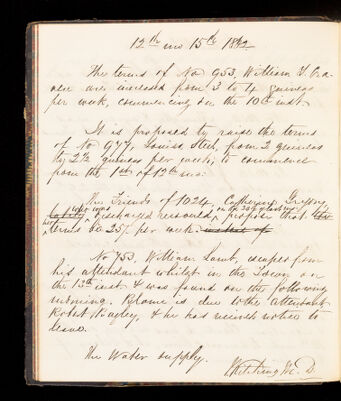 12th mo 15th 1892
The terms of No 953, William T. Cra-
are increased from 3 to 4 guineas
per week, commencing on the 10th inst.
It is proposed to raise the terms
of No 977, Louisa Steel, from 2 guineas
to 2½ guineas per week, to commence
from the 1st of 12th mo:
The Friends of 1024, Catherine Gregory,
who was discharged recovered, propose that her
terms be 25/- per week.
No 753. William Lamb, escaped from
his attendant whilst in the Town on
the 13th inst. & was found on the following
morning. Blame is due to the attendant
Robert Bagley, & he has received notice to
leave.
The Water supply.